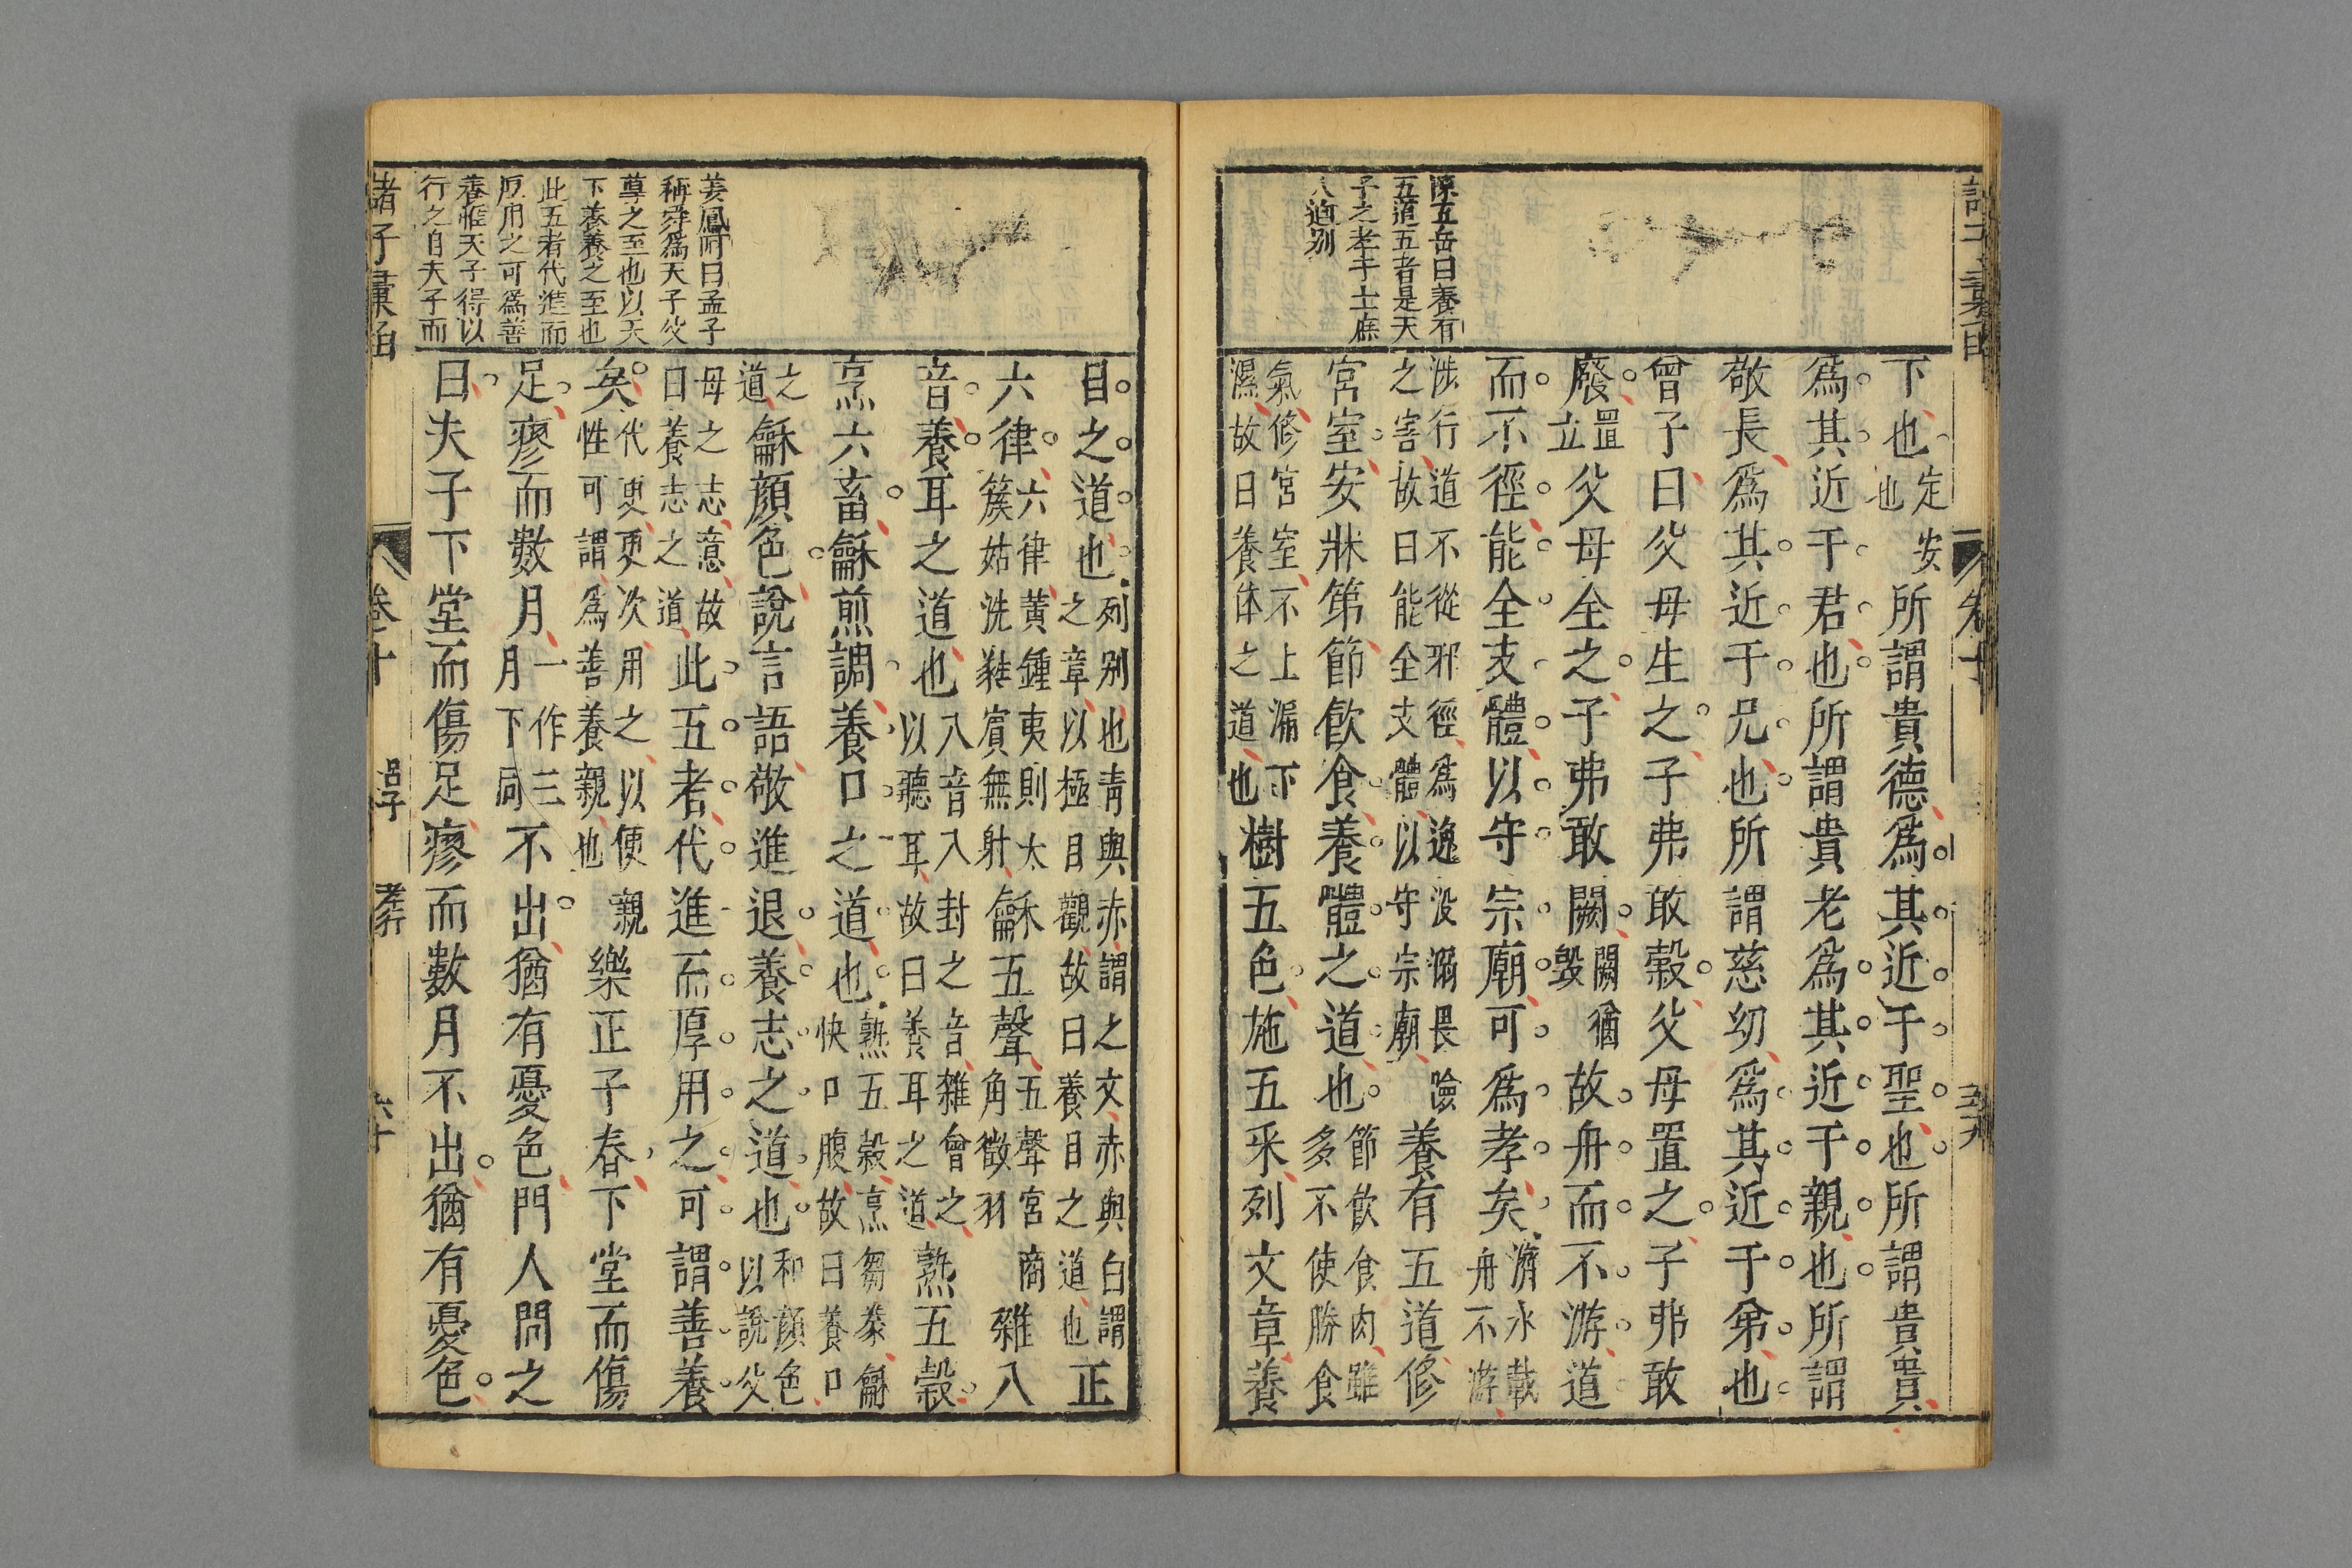 下也定安也所謂貴德爲其近于聖也所謂貴貴
爲其近于君也所謂貴老爲其近于親也所謂
敬長爲其近于兄也所謂慈幼爲其近于弟也
曾子曰父母生之子弗敢殺父母置之子弗敢
廢置立父母全之子弗敢闕闕猶毀故舟而不游道
而不徑能全支體以守宗廟可爲孝矣濟水載舟不游
涉行道不從邪徑爲逸没溺畏險之害故曰能全支體以守宗廟養有五道修
宮室安牀第節飲食養體之道也節飲食肉雖多不使勝食
氣修宮室不上漏下濕故曰養体之道也樹五色施五采列文章養
陳五岳曰養有
五道五者是天
子之孝于士庶
人迫别
目之道也列别也青與赤謂之文赤與白謂之章以極目觀故曰養目之道也正
六律六律黄鍾夷則太簇姑洗蕤賓無射龢五聲五聲宮商角徵羽雜八
音養耳之道也八音八封之音雜會之以聽耳故曰養耳之道熟五穀
烹六畜龢煎調養口之道也熟五穀烹芻豢龢快口腹故曰養口
之道龢顔色說言語敬進退養志之道也和顔色以說父
母之志意故曰養志之道此五者代進而厚用之可謂善養
矣代更更次用之以便親性可謂爲善養親也樂正子春下堂而傷
足瘳而數月月一作三下同不出猶有憂色門人問之
曰夫子下堂而傷足瘳而數月不出猶有憂色
姜鳳阿曰孟子
稱舜爲天子父
尊之至也以天
下養養之至也
此五者代進而
厚用之可爲善
養惟天子得以
行之自夫子而
諸子彙函
卷十
呂子
孝行
六十